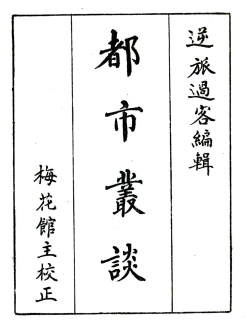 逆旅過客編輯
都市叢談
梅花館主校正